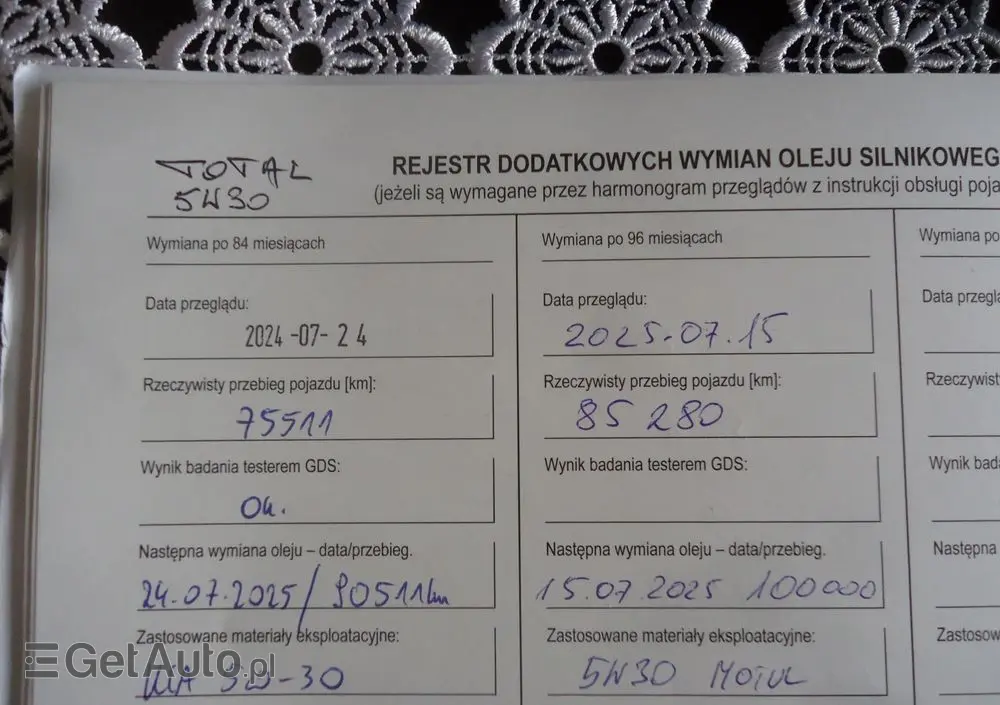 TOTAL
5W30
REJESTR DODATKOWYCH WYMIAN OLEJU SILNIKOWEG
(jeżeli są wymagane przez harmonogram przeglądów z instrukcji obsługi poja
Wymiana po 84 miesiącach
Data przeglądu:
2024-07-24
Rzeczywisty przebieg pojazdu [km]:
75511
Wynik badania testerem GDS:
Ok.
Następna wymiana oleju – data/przebieg.
24.07.2025/90511km
Zastosowane materiały eksploatacyjne:
KIA 5W-30
Wymiana po 96 miesiącach
Data przeglądu:
2025.07.15
Rzeczywisty przebieg pojazdu [km]:
85 280
Wynik badania testerem GDS:
Następna wymiana oleju – data/przebieg.
15.07.2025 100000
Zastosowane materiały eksploatacyjne:
5W30 MOTUL
Wymiana po
Data przeglą
Rzeczywist
Wynik bada
Następna
Zastosow
GetAuto.pl